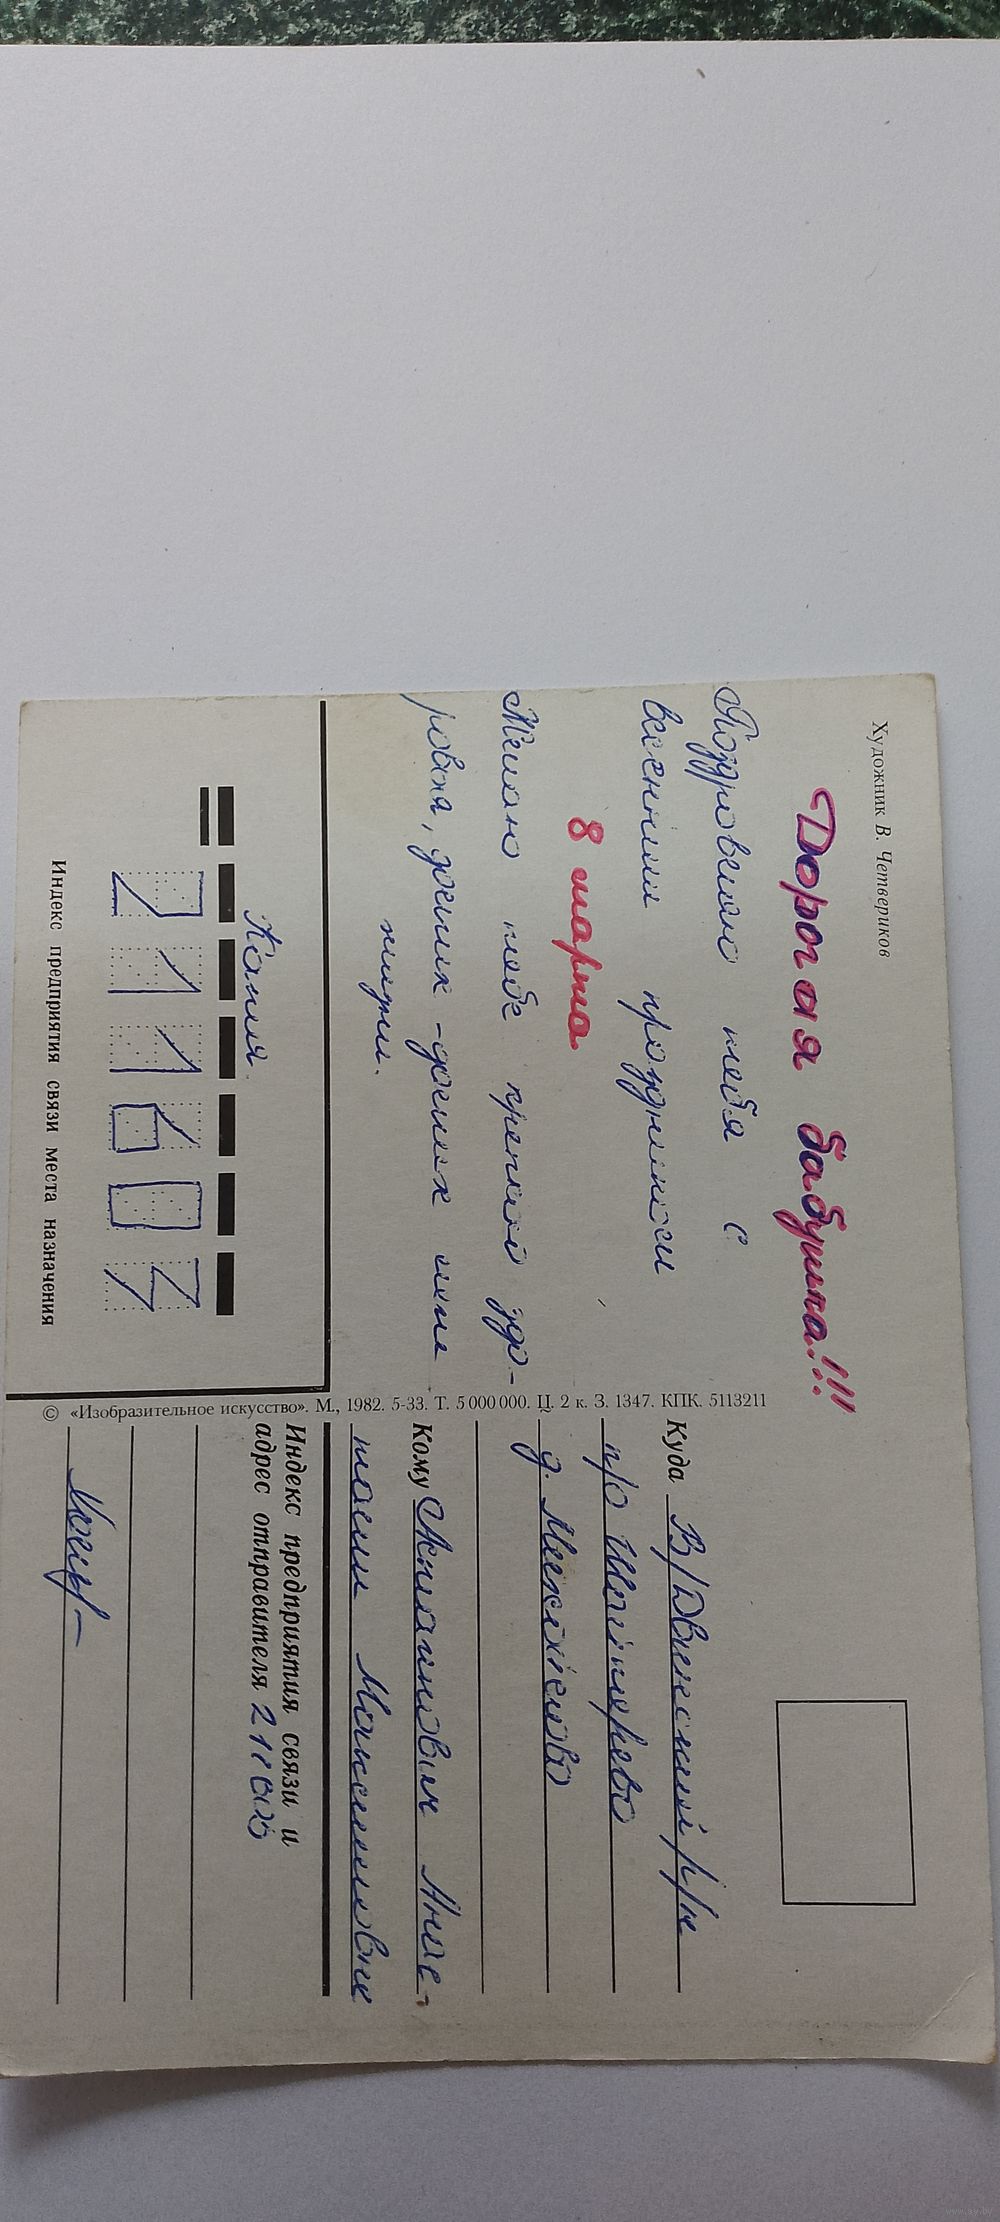 Художник В. Четвериков
Дорогая бабушка!!!
Поздровляю тебя с
весенним праздником
8 марта
Желаю тебе крепкого здо-
ровья, долгих-долгих лет
жизни.
Коля.
211603
Индекс предприятия связи места назначения
© «Изобразительное искусство». М., 1982. 5-33. Т. 5 000 000. Ц. 2 к. З. 1347. КПК. 5113211
Куда В/Двинский р/н
п/о
д.
Кому Анас-
тасии Максимовне
Индекс предприятия связи и
адрес отправителя
www.ay.by